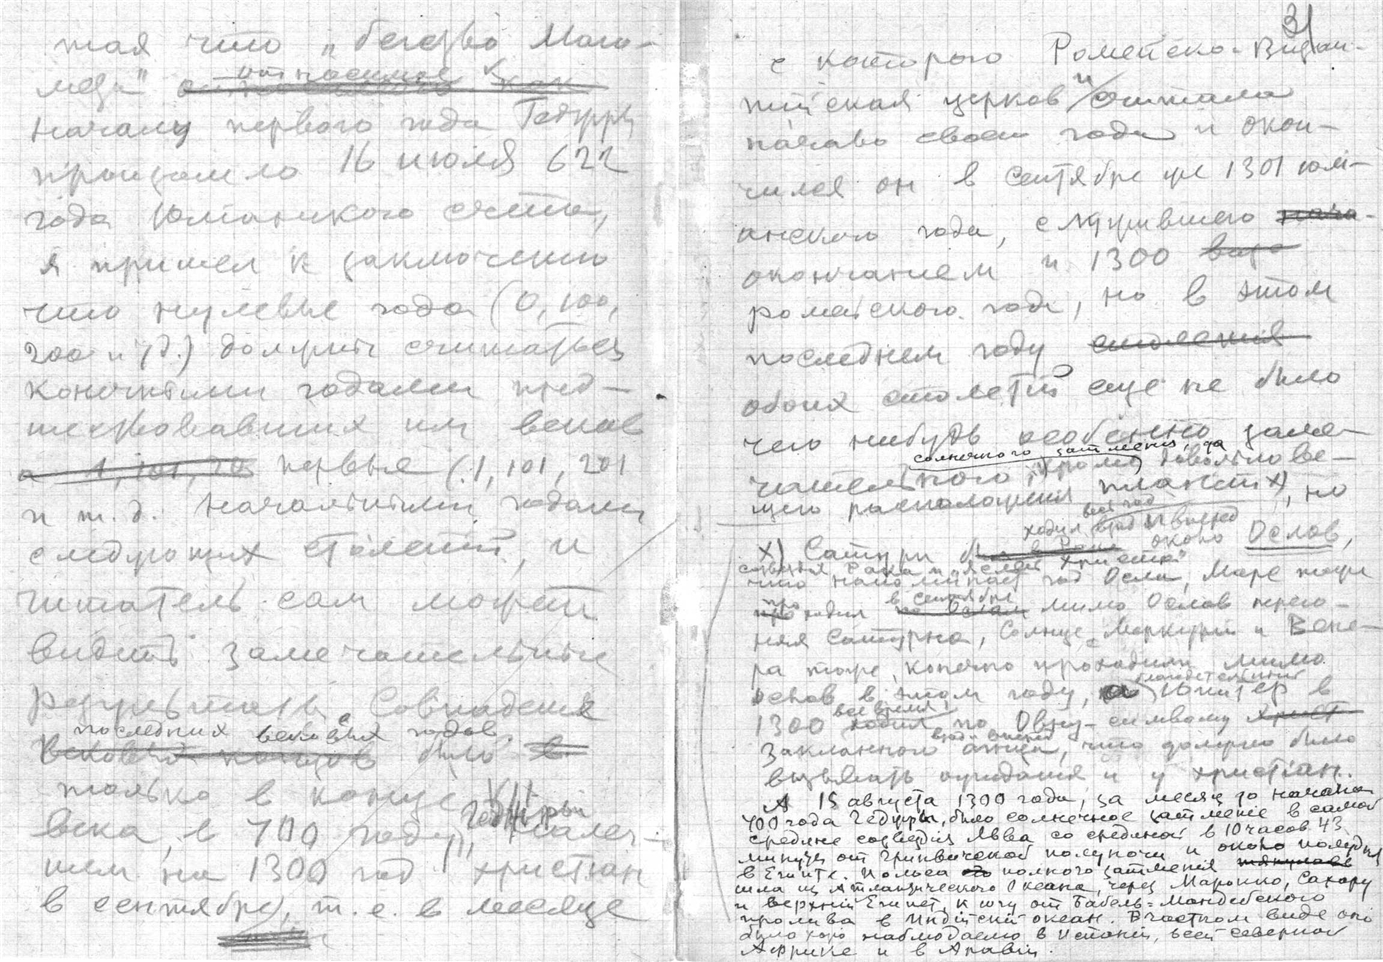 тая что „бегство Маго-
меда"
относимое к
началу первого года Геджры
произошло 16 июля 622
года Юлианского счета,
я пришел к заключению
что нулевые года (0, 100,
200 и т.д.) должны считаться
конечными годами пред-
шествовавших им веков
а 1, 101, 20 первые (1, 101, 201
и т.д. начальными годами
следующих столетий, и
читатель сам может
видеть замечательные
результаты. Совпадения
последних вековых годов
вековых концов было в
только в конце VII
века, в 700 году Геджры,
шем на 1300 год христиан
в сентябре, т.е. в месяце
31
с которого Ромейско-Визан-
тийская церковь и считала
начало своего года и окон-
чился он в сентябре уже 1301 юли-
анского года, служившего
окончанием и 1300
ромейского года, но в этом
последнем году столетия
обоих столетий еще не было
чего нибудь особенно заме-
солнечного затмения, да
чательного, кроме довольно ве-
щего расположения планет х), но
весь год
ходил взад и вперед
х) Сатурн около Ослов,
что напоминает год Осла, Марс тоже
в сентябре
проходил мимо Ослов перего-
няя Сатурна, Солнце с Меркурий и Вене-
ра тоже, конечно проходили мимо
Ослов в этом году, а Юпитер в
все время
1300 ходил по Овну - символу христ
взад и вперед
Закланного агнца, что должно было
вызывать ожидания и у христиан.
А 15 августа 1300 года, за месяц до начала
700 года Геджры, было солнечное затмение в самой
средине созвездия Льва со срединой в 10 часов 43
минуты от Гринвической полуночи и около полудня
в Египте. Полоса полного затмения
шла из Атлантического Океана, через Марокко, Сахару
и Верхний Египет, к югу от Бабель-Мандебского
пролива в Индийский океан. В частном виде оно
было наблюдаемо в Испании, всей северной
Африке и в Аравии.